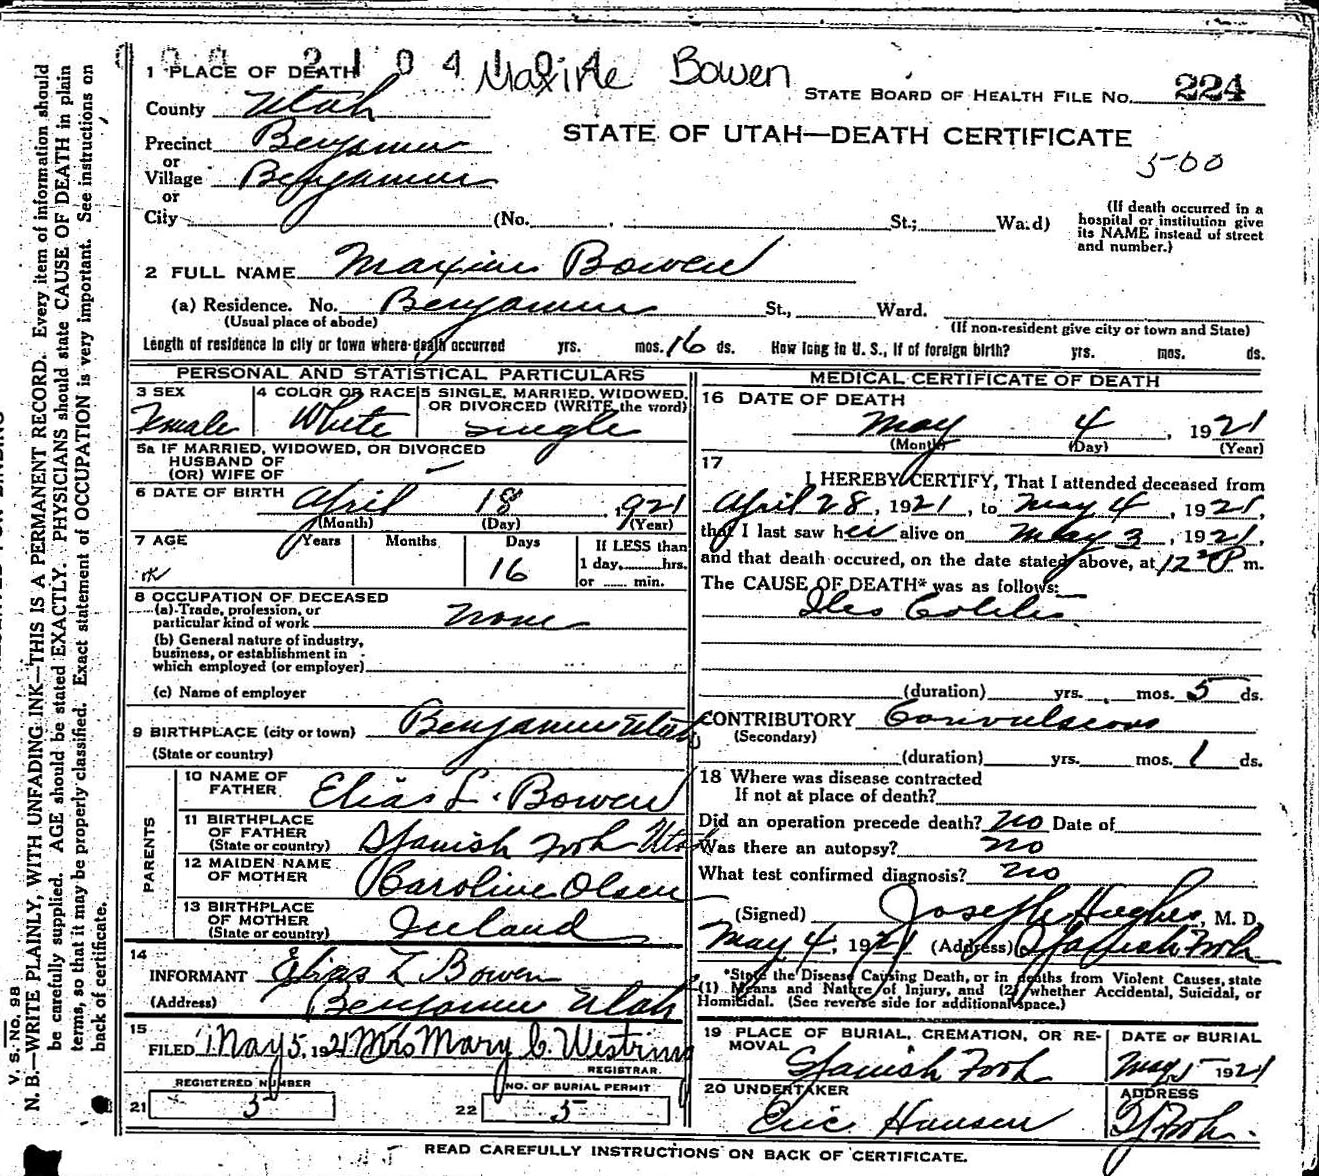 Maxine Bowen
1 PLACE OF DEATH
STATE BOARD OF HEALTH FILE NO. 224
County Utah
STATE OF UTAH—DEATH CERTIFICATE
500
Precinct Benjamin
or
Village Benjamin
or
City (No. St.; Ward)
(If death occurred in a
hospital or institution give
its NAME instead of street
and number.)
2 FULL NAME Maxine Bowen
(a) Residence. No. Benjamin St., Ward.
(Usual place of abode) (If non-resident give city or town and State)
Length of residence in city or town where death occurred yrs. mos. 16 ds. How long in U. S., if of foreign birth? yrs. mos. ds.
PERSONAL AND STATISTICAL PARTICULARS
3 SEX
Female
4 COLOR OR RACE
White
5 SINGLE, MARRIED, WIDOWED,
OR DIVORCED (WRITE the word)
Single
5a IF MARRIED, WIDOWED, OR DIVORCED
HUSBAND OF
(OR) WIFE OF
6 DATE OF BIRTH April 18, 1921
(Month) (Day) (Year)
7 AGE Years Months Days
16
If LESS than
1 day, hrs.
or min.
8 OCCUPATION OF DECEASED
(a) Trade, profession, or
particular kind of work None
(b) General nature of industry,
business, or establishment in
which employed (or employer)
(c) Name of employer
9 BIRTHPLACE (city or town) Benjamin Utah
(State or country)
PARENTS
10 NAME OF
FATHER Elias L. Bowen
11 BIRTHPLACE
OF FATHER
(State or country) Spanish Fork Utah
12 MAIDEN NAME
OF MOTHER Caroline Olsen
13 BIRTHPLACE
OF MOTHER
(State or country) Iceland
14
INFORMANT Elias L Bowen
(Address) Benjamin Utah
15
FILED May 5, 1921 Mrs Mary C. Westring
REGISTRAR.
REGISTERED NUMBER
21 5
NO. OF BURIAL PERMIT
22 5
MEDICAL CERTIFICATE OF DEATH
16 DATE OF DEATH
May 4, 1921
(Month) (Day) (Year)
17
I HEREBY CERTIFY, That I attended deceased from
April 28, 1921, to May 4, 1921,
that I last saw her alive on May 3, 1921,
and that death occured, on the date stated above, at 12 P m.
The CAUSE OF DEATH* was as follows:
Ileo Colitis
(duration) yrs. mos. 5 ds.
CONTRIBUTORY Convulsions
(Secondary)
(duration) yrs. mos. 1 ds.
18 Where was disease contracted
If not at place of death?
Did an operation precede death? no Date of
Was there an autopsy? no
What test confirmed diagnosis? no
(Signed) Joseph Hughes, M. D.
May 4, 1921 (Address) Spanish Fork
*State the Disease Causing Death, or in deaths from Violent Causes, state
(1) Means and Nature of Injury, and (2) whether Accidental, Suicidal, or
Homicidal. (See reverse side for additional space.)
19 PLACE OF BURIAL, CREMATION, OR RE-
MOVAL
Spanish Fork
DATE OF BURIAL
May 5 1921
20 UNDERTAKER
Eric Hansen
ADDRESS
Sp Fork.
READ CAREFULLY INSTRUCTIONS ON BACK OF CERTIFICATE.
V. S. No. 98
N. B.—WRITE PLAINLY, WITH UNFADING INK—THIS IS A PERMANENT RECORD. Every item of information should
be carefully supplied. AGE should be stated EXACTLY. PHYSICIANS should state CAUSE OF DEATH in plain
terms, so that it may be properly classified. Exact statement of OCCUPATION is very important. See instructions on
back of certificate.